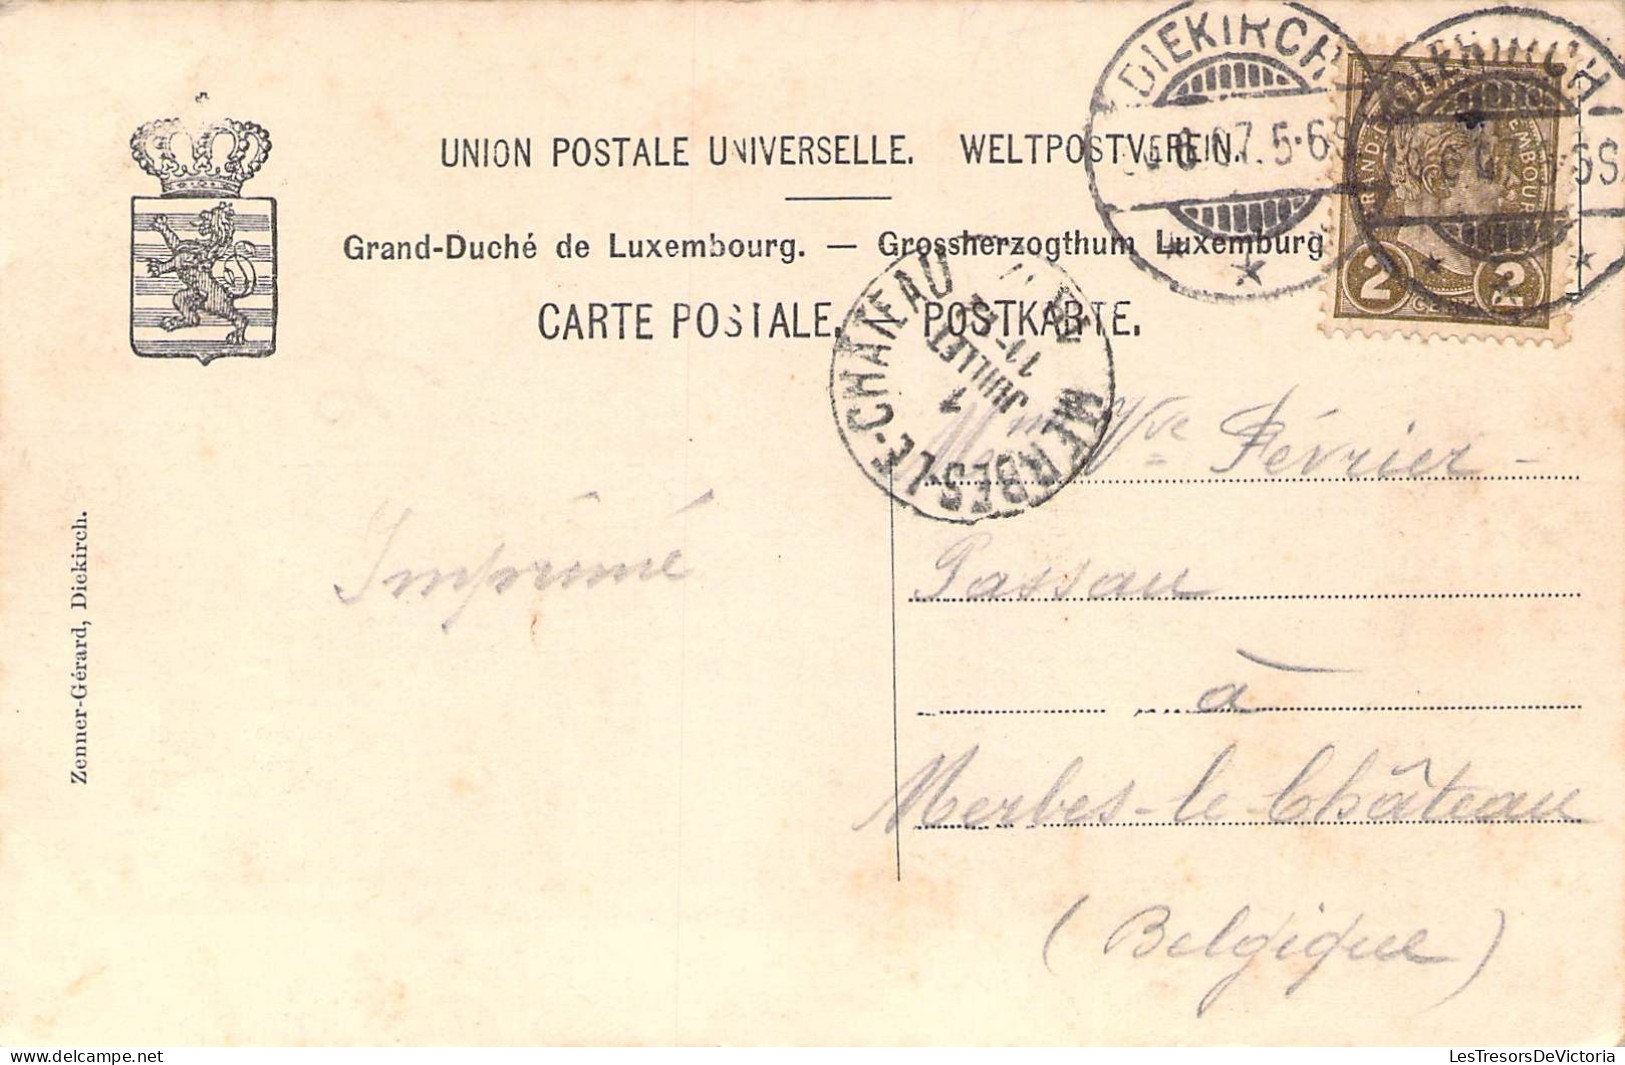 UNION POSTALE UNIVERSELLE. WELTPOSTVEREIN.
Grand-Duché de Luxembourg. — Grossherzogthum Luxemburg
CARTE POSTALE. POSTKARTE.
DIEKIRCH
6.07.5-6S
DIEKIRCH
6.07.5-6S
2 2
MERBES-LE-CHATEAU
1
JUILLET
11-
Mme Vve Février -
Passau
à
Merbes-le-Château
(Belgique)
Imprimé
Zenner-Gérard, Diekirch.
LesTresorsDeVictoria
delcampe.net